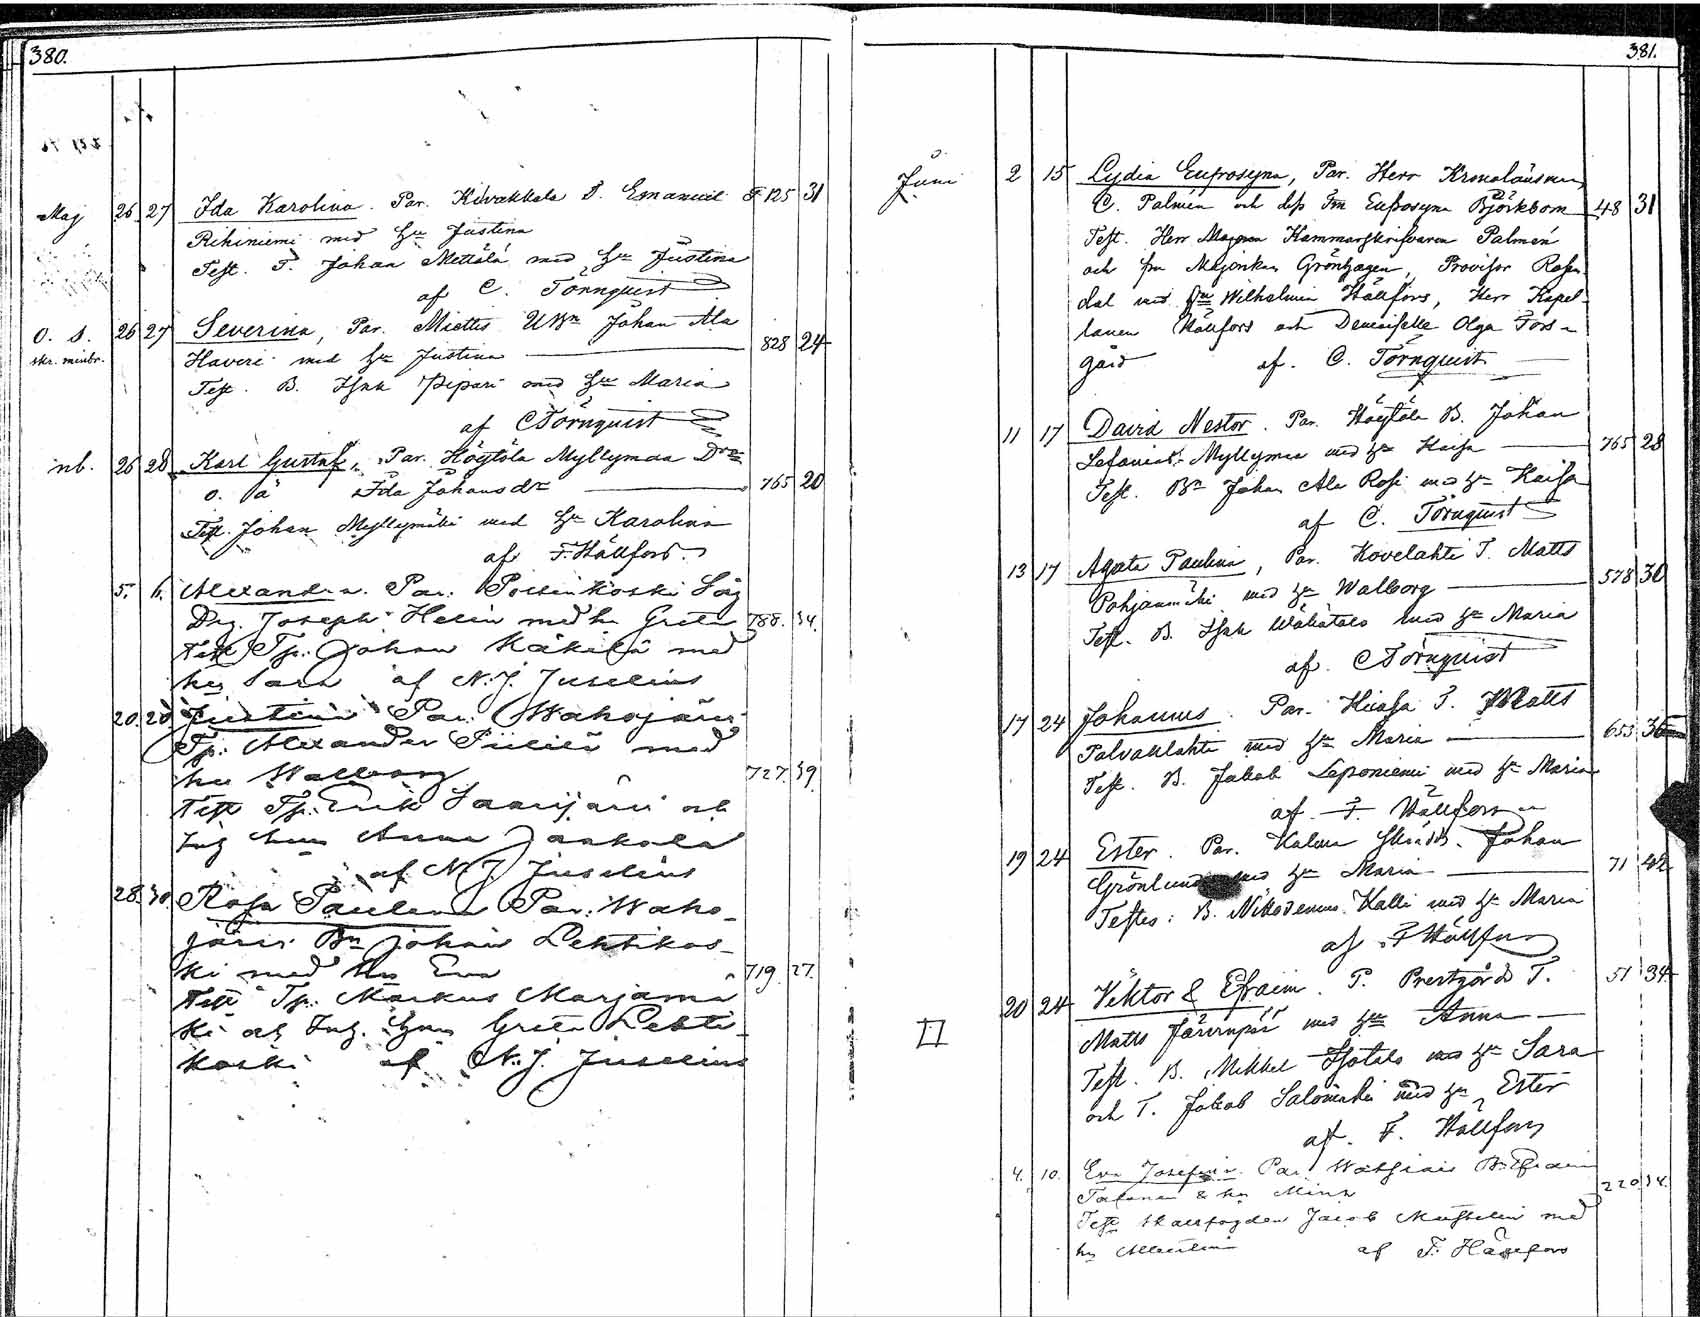 380.
Maj 26 27 Ida Karolina. Par. Kivakkala T. Emanuel F 125 31
Rihiniemi med Hu Justina
Test. T. Johan Mettälä med Hu Justina
af C. Törnquist
o. s. 26 27 Severina, Par. Miettis Johan Ala
skr. minbr. Haveri med Hu Justina 828 24
Test. B. Isak Pipari med Hu Maria
af C Törnquist
nb. 26 28 Karl Gustaf, Par. Höytölä Myllymaa
o. ä Ida Johansdr 765 20
Test. Johan Myllymäki med Hu Karolina
af F. Hällfors.
5. 6. Alexandra. Par.
Joseph Helin med hu Greta 788. 34.
Test Tp. Johan Käkelä med
hu Sara af N. J. Juselius
20. 20 Justina Par. Wahojärvi
Tp. Alexander med
hu Walborg 727. 39.
Test Tp. Erik Saarijärvi och
Anna Jaskala
af N J. Juselius
28. 30. Rosa Paulina Par. Waho-
järvi Bn Johan Lehtikos-
ki med hu Eva 719. 27.
Test Tp. Markus Marjamä
ki och Greta Lehti
koski af N. J. Juselius
381.
Juni 2 15 Lydia Euprosyna, Par. Herr Kronolänsman
C. Palmén och dess Fru Euprosyna Björkbom 48 31
Test. Herr Kammarskrifvaren Palmén
och fru Grönhagen, Provisor Rosen
dal med Wilhelmina Hällfors, Herr Kapel-
lanen Hällfors och Olga Fors-
gård af. C. Törnquist
11 17 David Nestor. Par. Höytölä B. Johan
Myllymaa med Hu Kaisa 765 28
Test. Bn Johan Ala Rosi med Hu Kaisa
af C. Törnquist
13 17 Agata Paulina, Par. Kovelahti T. Matts
Pohjanmäki med Hu Walborg 578 30
Test. B. Isak med Hu Maria
af. C Törnquist
17 24 Johannes. Par. T. Matts
med Hu Maria 653 36
Test. B. Jakob Leponiemi med Hu Maria
af F Hällfors
19 24 Ester. Par. Johan
Grönlund med Hu Maria 71 42
Testes: B. Nikodemus Kalli med Hu Maria
af F Hällfors
20 24 Viktor & Efraim. P. Prestgård T. 51 34
Matts med Hu Anna
Test. B. Mikkel med Hu Sara
och T. Jakob Salomäki med Hu Ester
af. F. Hällfors
4. 10. Eva Josefina. Par.
& hu Mina 220 34.
Test Jacob med
hu af F. Hällfors